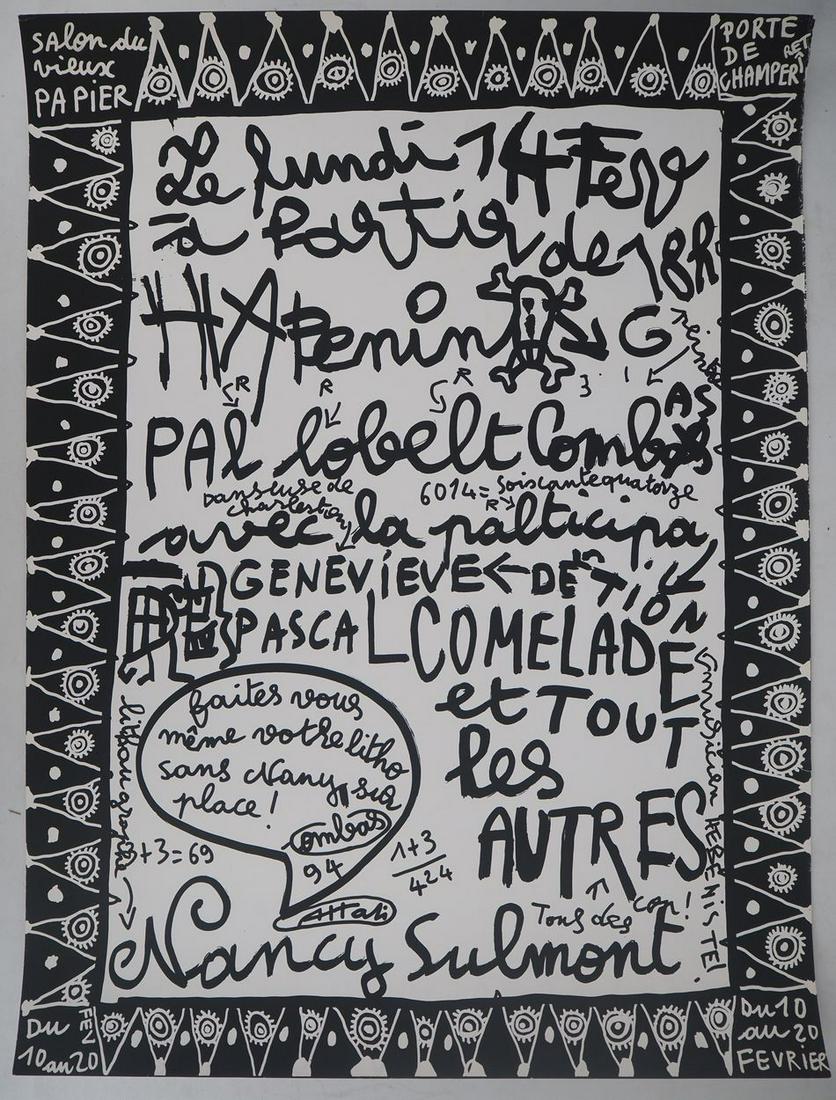 SALON du
vieux
PAPIER
PORTE
DE
CHAMPERRET
Le lundi 14 Fev
à Partir de 18h
HAPenin G
R R R 3 1
PAl lobelt CombAS
danseuse de
charleston
6014 = soiscantequatorze
R
avec la palticipa
TION
GENEVIEVE ← DE
PASCAL COMELADE
et TOUT
les
AUTRES
musicien
faites vous
même votre litho
sans Nany sur
place!
Combas
94
3+3=69
1+3
424
Attali
Tous des con!
Nancy Sulmont
DU
10 au 20
FEV
Du 10
au 20
FEVRIER